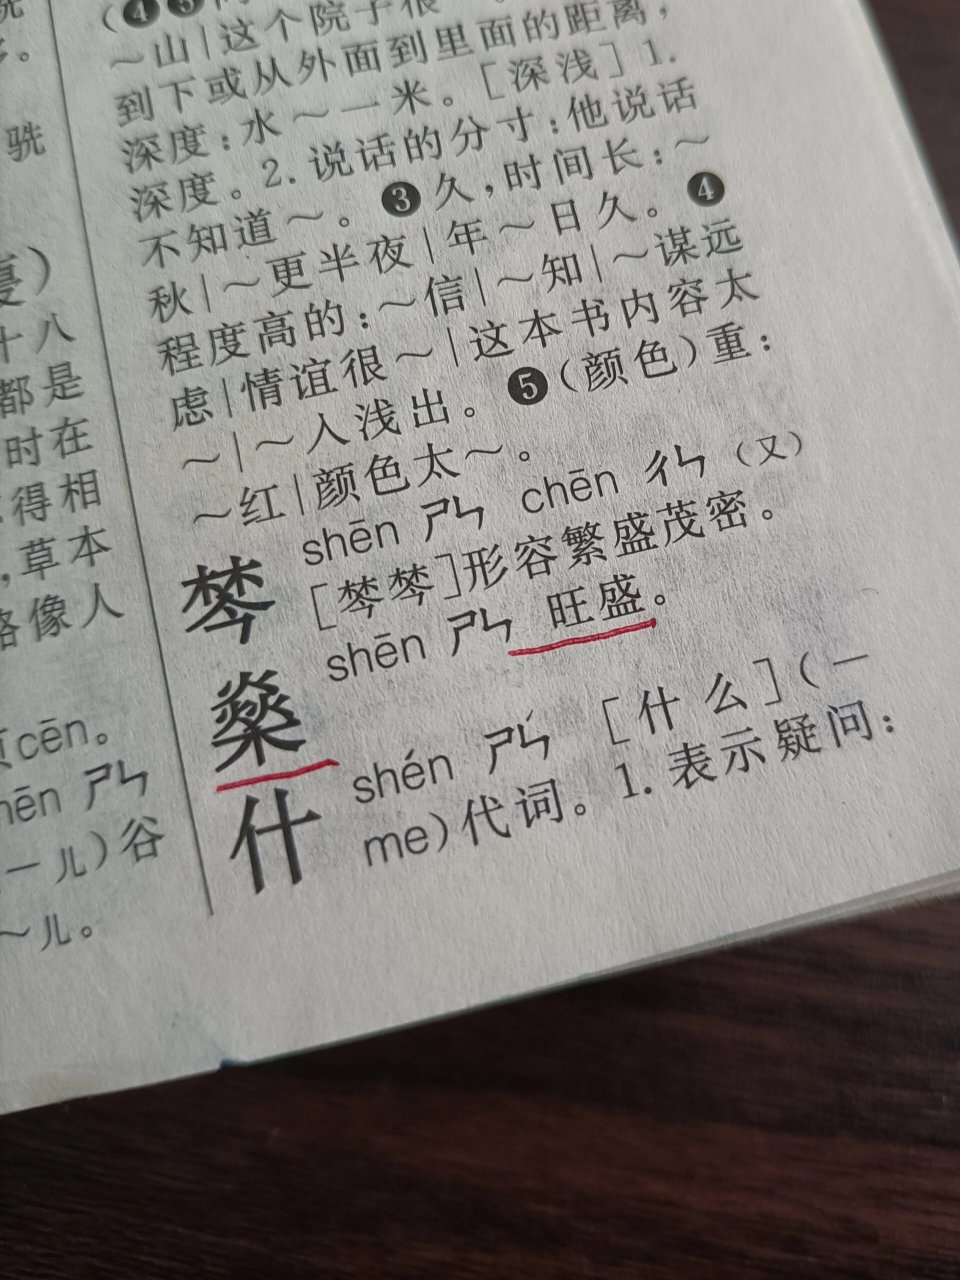 𬳽
）
十八
都是
时在
得相
，草本
略像人
cēn。
hēn ㄕㄣ
一ㄦ）谷
～儿。
（❹❺
～山｜这个院子很～。
到下或从外面到里面的距离，
深度：水～一米。［深浅］1.
深度。2. 说话的分寸：他说话
不知道～。❸久，时间长：～
秋｜～更半夜｜年～日久。❹
程度高的：～信｜～知｜～谋远
虑｜情谊很～｜这本书内容太
～｜～入浅出。❺（颜色）重：
～红｜颜色太～。
棽 shēn ㄕㄣ chēn ㄔㄣ（又）
［棽棽］形容繁盛茂密。
燊 shēn ㄕㄣ 旺盛。
什 shén ㄕㄣˊ ［什么］（－
me）代词。1. 表示疑问：